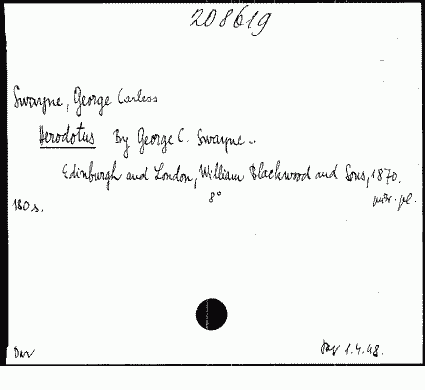 208619
Swayne, George Carless
Herodotus By George C. Swayne..
Edinburgh and London, William Blackwood and Sons, 1870.
8°
180 s.
Dar 1.4.48.